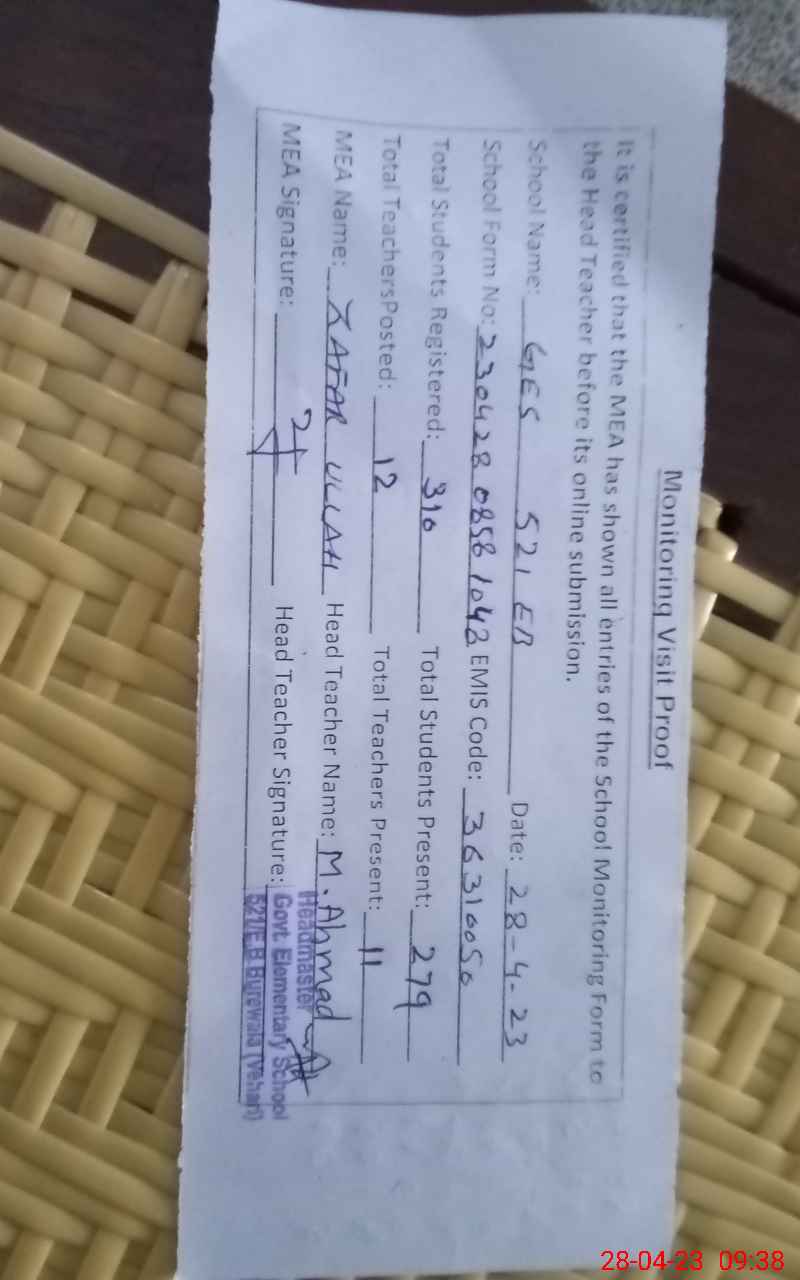 Monitoring Visit Proof
It is certified that the MEA has shown all entries of the School Monitoring Form to
the Head Teacher before its online submission.
School Name: GES 521 EB Date: 28-4-23
School Form No: 23042808581042 EMIS Code: 36310050
Total Students Registered: 310 Total Students Present: 279
Total TeachersPosted: 12 Total Teachers Present: 11
MEA Name: ZAFAR ULLAH Head Teacher Name: M. Ahmad
MEA Signature: Head Teacher Signature:
Headmaster
Govt. Elementary School
521/E.B Burewala (Vehari)
28-04-23 09:38